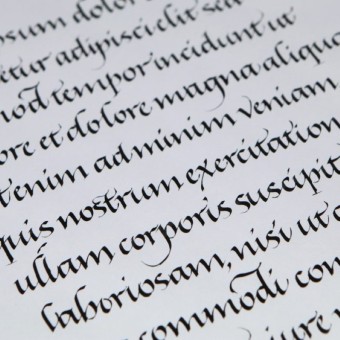 psum dolor
etur adipisci elit sed
mod tempor incidunt ut
ore et dolore magna aliqua
t enim ad minim veniam
quis nostrum exercitation
ullam corporis suscipit
laboriosam, nisi ut
commodi con
iure